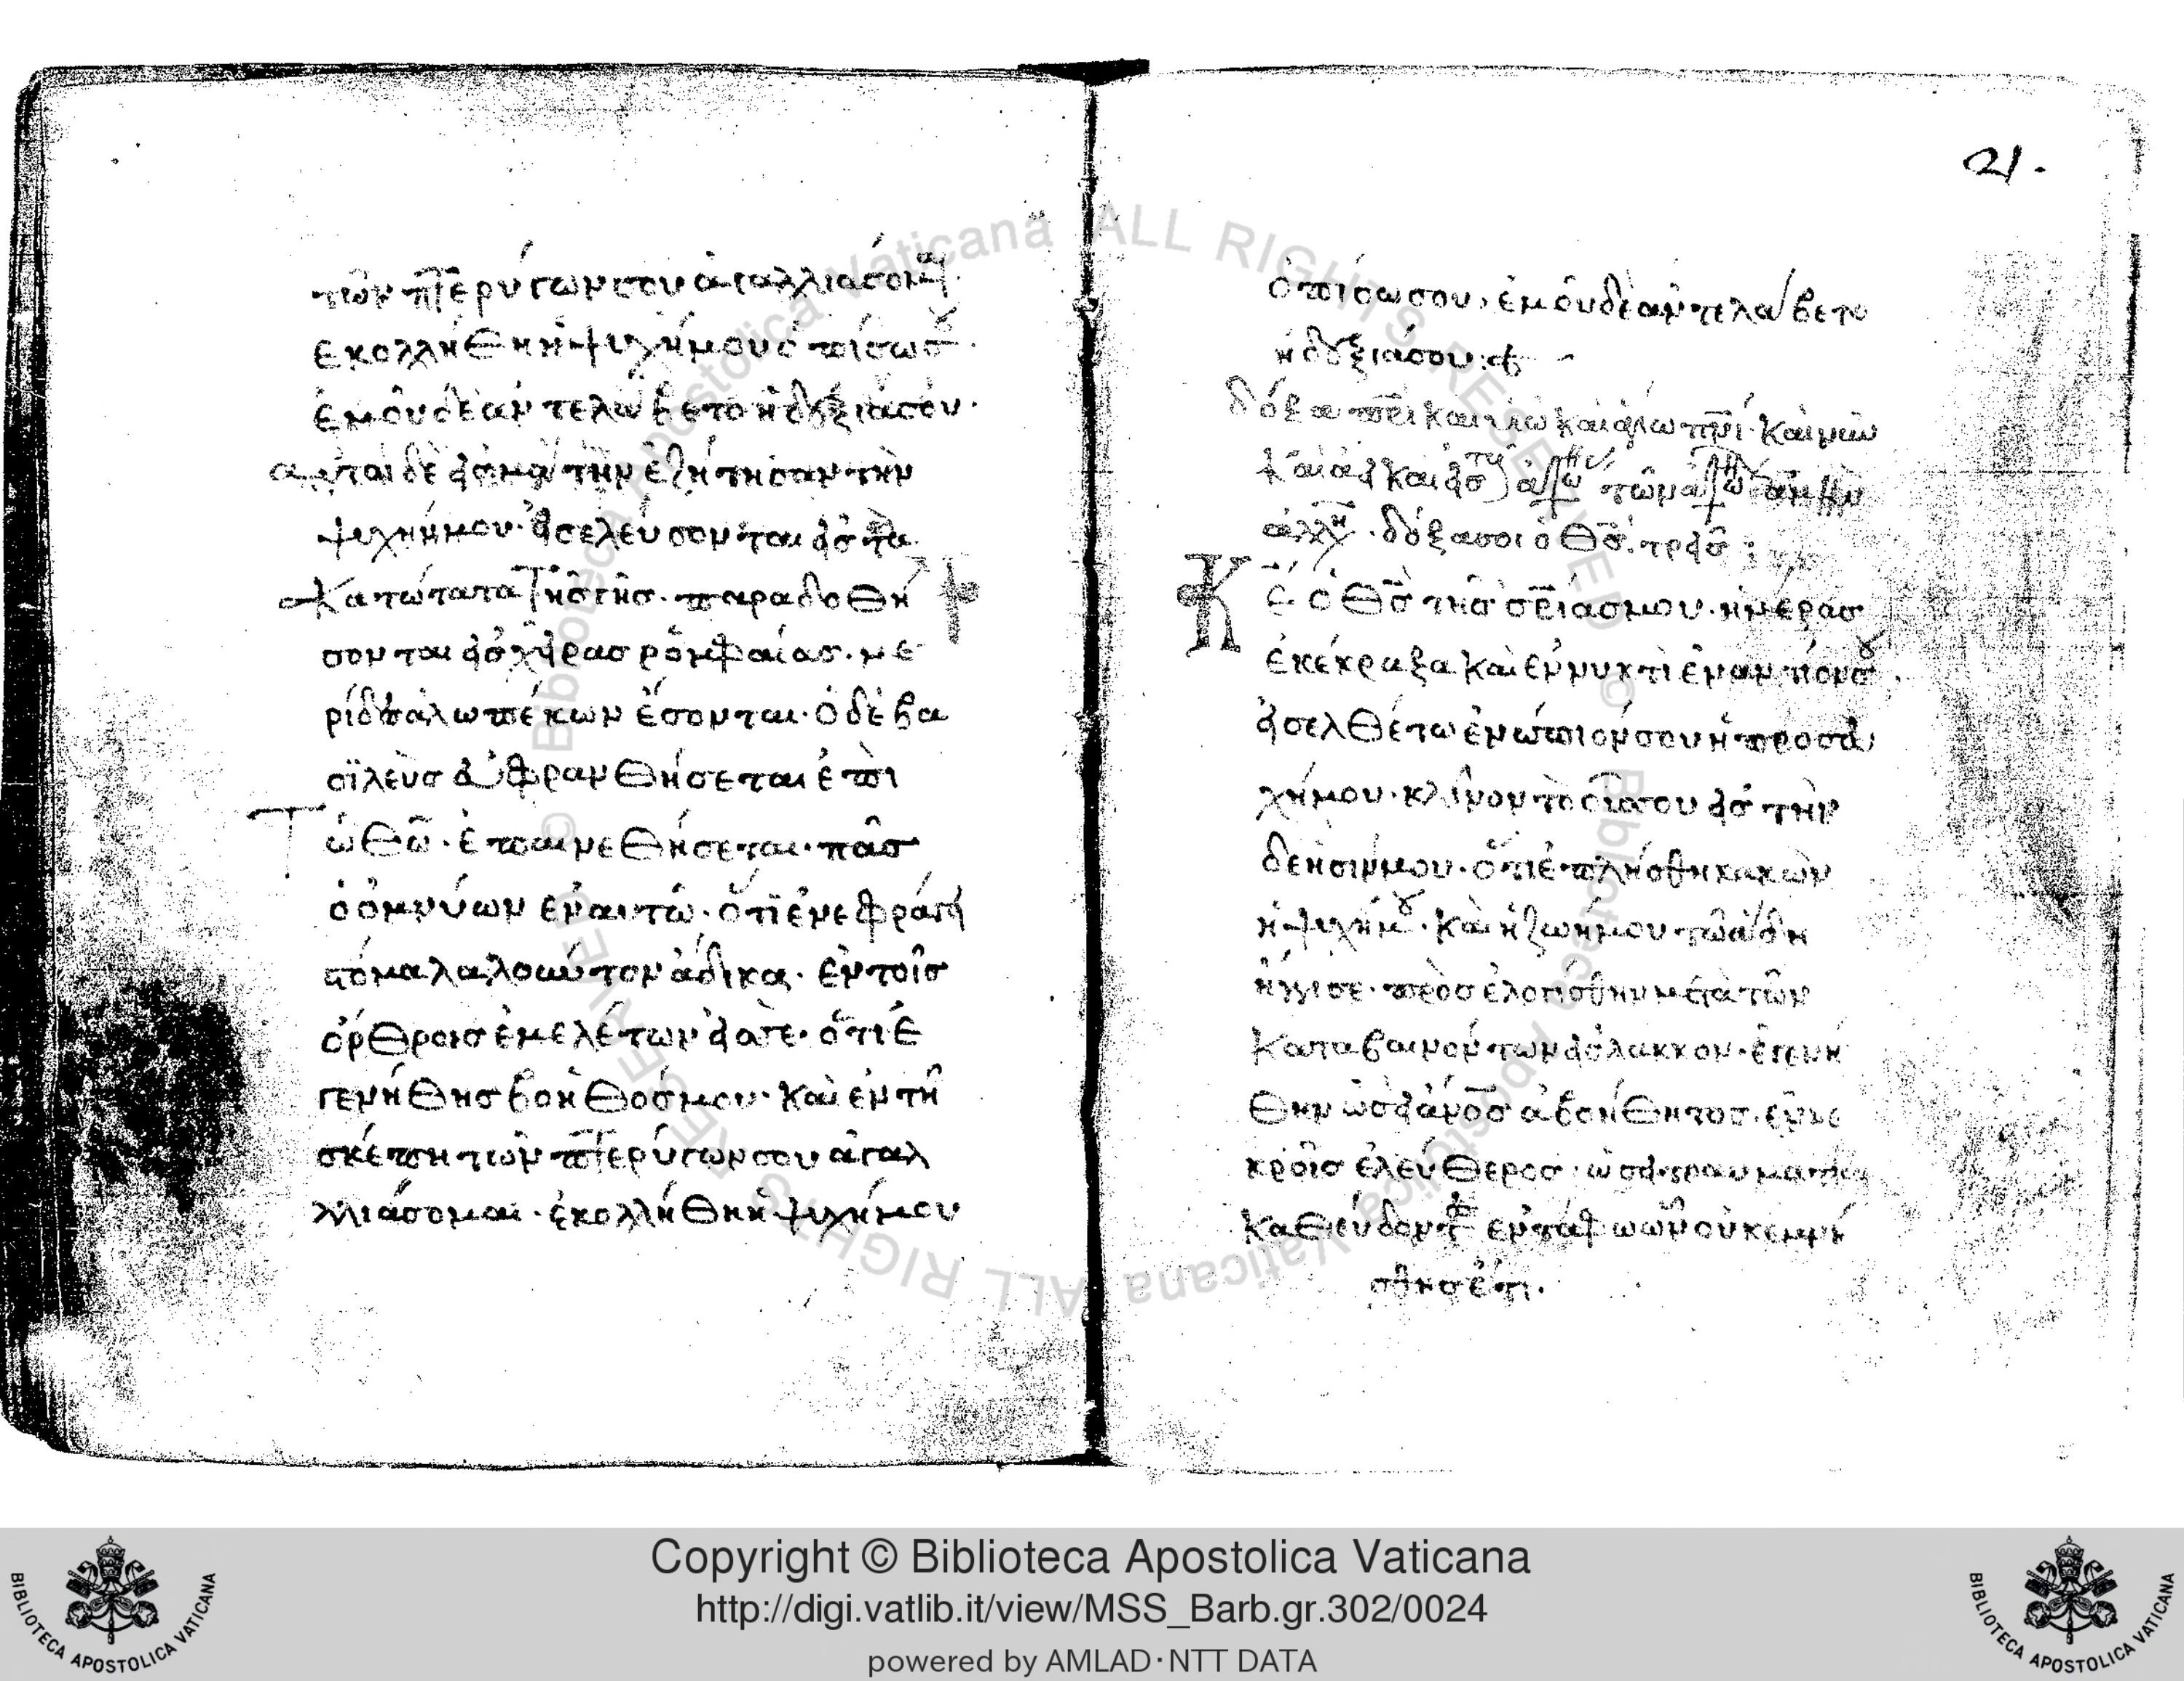 τῶν πτερύγων σου ἀγαλλιάσομαι
ἐκολλήθη ἡ ψυχή μου ὀπίσω σου·
ἐμοῦ δὲ ἀντελάβετο ἡ δεξιά σου·
αὐτοὶ δὲ εἰς μά την ἐζήτησαν τὴν
ψυχήν μου· εἰσελεύσονται εἰς τὰ
κατώτατα τῆς γῆς· παραδοθή
σονται εἰς χεῖρας ῥομφαίας· με
ρίδες ἀλωπέκων ἔσονται· ὁ δὲ βα
σϊλεὺς εὐφρανθήσεται ἐπι
Τ
ῶ θῶ· ἐπαινεθήσεται· πᾶς
ὁ ὀμνύων ἐν αυτῶ· ὅτϊ ἐνεφράγη
στόμα λαλούντον ἄδικα· ἐν τοῖς
ὄρθροις ἐμελέτων εἰς σε· ὅτι ἐ
γενήθης βοηθός μου· καὶ ἐν τῆ
σκέπη τῶν πτερύγων σου ἀγαλ
λιάσομαι· ἐκολλήθη ἡ ψυχή μου
21.
ὀπίσω σου, ἐμοῦ δὲ ἀντελάβετο
ἡ δεξιά σου:
δόξα πρι και υιῶ καὶ ἁγίω πνι· καὶ νῦν
καὶ ἀεὶ καὶ εἰς τοὺς αἰῶνας τῶν αἰώνων ἀμήν
ἀλλη· δόξα σοι ὁ θς· τρεῖς:
Κ
ε ὁ θς τῆς σριας μου· ἡμέρας
ἐκέκραξα καὶ ἐν νυκτὶ ἐναντίον σου·
εἰσελθέτω ἐνώπιόν σου ἡ προσευ
χή μου· κλῖνον τὸ οὖς σου εἰς τὴν
δέησίν μου· ὅτι ἐπλήσθη κακῶν
ἡ ψυχή μου· καὶ ἡ ζωή μου τῶ ἅδη
ἤγγισε· προσελογίσθην μετὰ τῶν
καταβαινόντων εἰς λάκκον· ἐγενή
θην ὡσεὶ ἄνος ἀβοήθητος· ἐν νε
κροῖς ἐλεύθερος· ὡσεὶ τραυματίαι
καθεύδοντες ἐν τάφω ὧν οὐκ ἐμνή
σθης ἔτι·
Copyright © Biblioteca Apostolica Vaticana
http://digi.vatlib.it/view/MSS_Barb.gr.302/0024
powered by AMLAD·NTT DATA
BIBLIOTECA APOSTOLICA VATICANA
BIBLIOTECA APOSTOLICA VATICANA
© Biblioteca Apostolica Vaticana ALL RIGHTS RESERVED
© Biblioteca Apostolica Vaticana ALL RIGHTS RESERVED